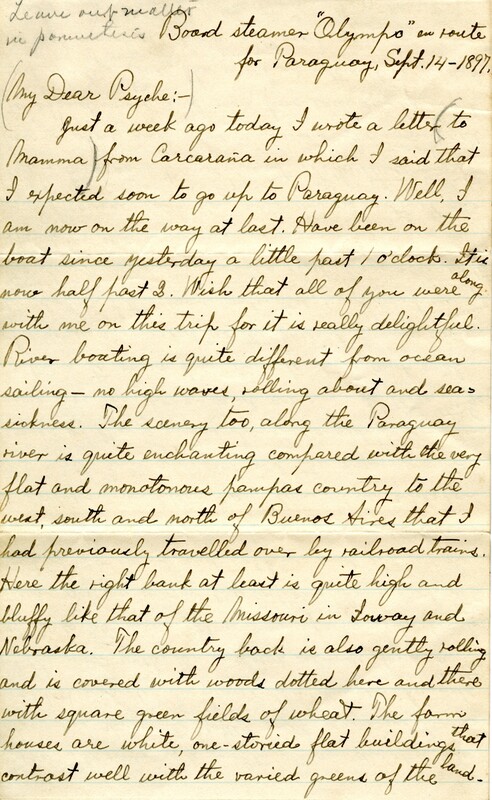 Leave out matter
in parenthesis
Board steamer "Olympo" en route
for Paraguay, Sept. 14-1897.
(My Dear Psyche:-
Just a week ago today I wrote a letter (to
Mamma) from Carcaraña in which I said that
I expected soon to go up to Paraguay. Well, I
am now on the way at last. Have been on the
boat since yesterday a little past 1 o'clock. It is
now half past 2. Wish that all of you were along
with me on this trip for it is really delightful.
River boating is quite different from ocean
sailing — no high waves, rolling about and sea=
sickness. The scenery too, along the Paraguay
river is quite enchanting compared with the very
flat and monotonous pampas country to the
west, south and north of Buenos Aires that I
had previously travelled over by railroad trains.
Here the right bank at least is quite high and
bluffy like that of the Missouri in Ioway and
Nebraska. The country back is also gently rolling
and is covered with woods dotted here and there
with square green fields of wheat. The farm
houses are white, one-storied flat buildings that
contrast well with the varied greens of the land-